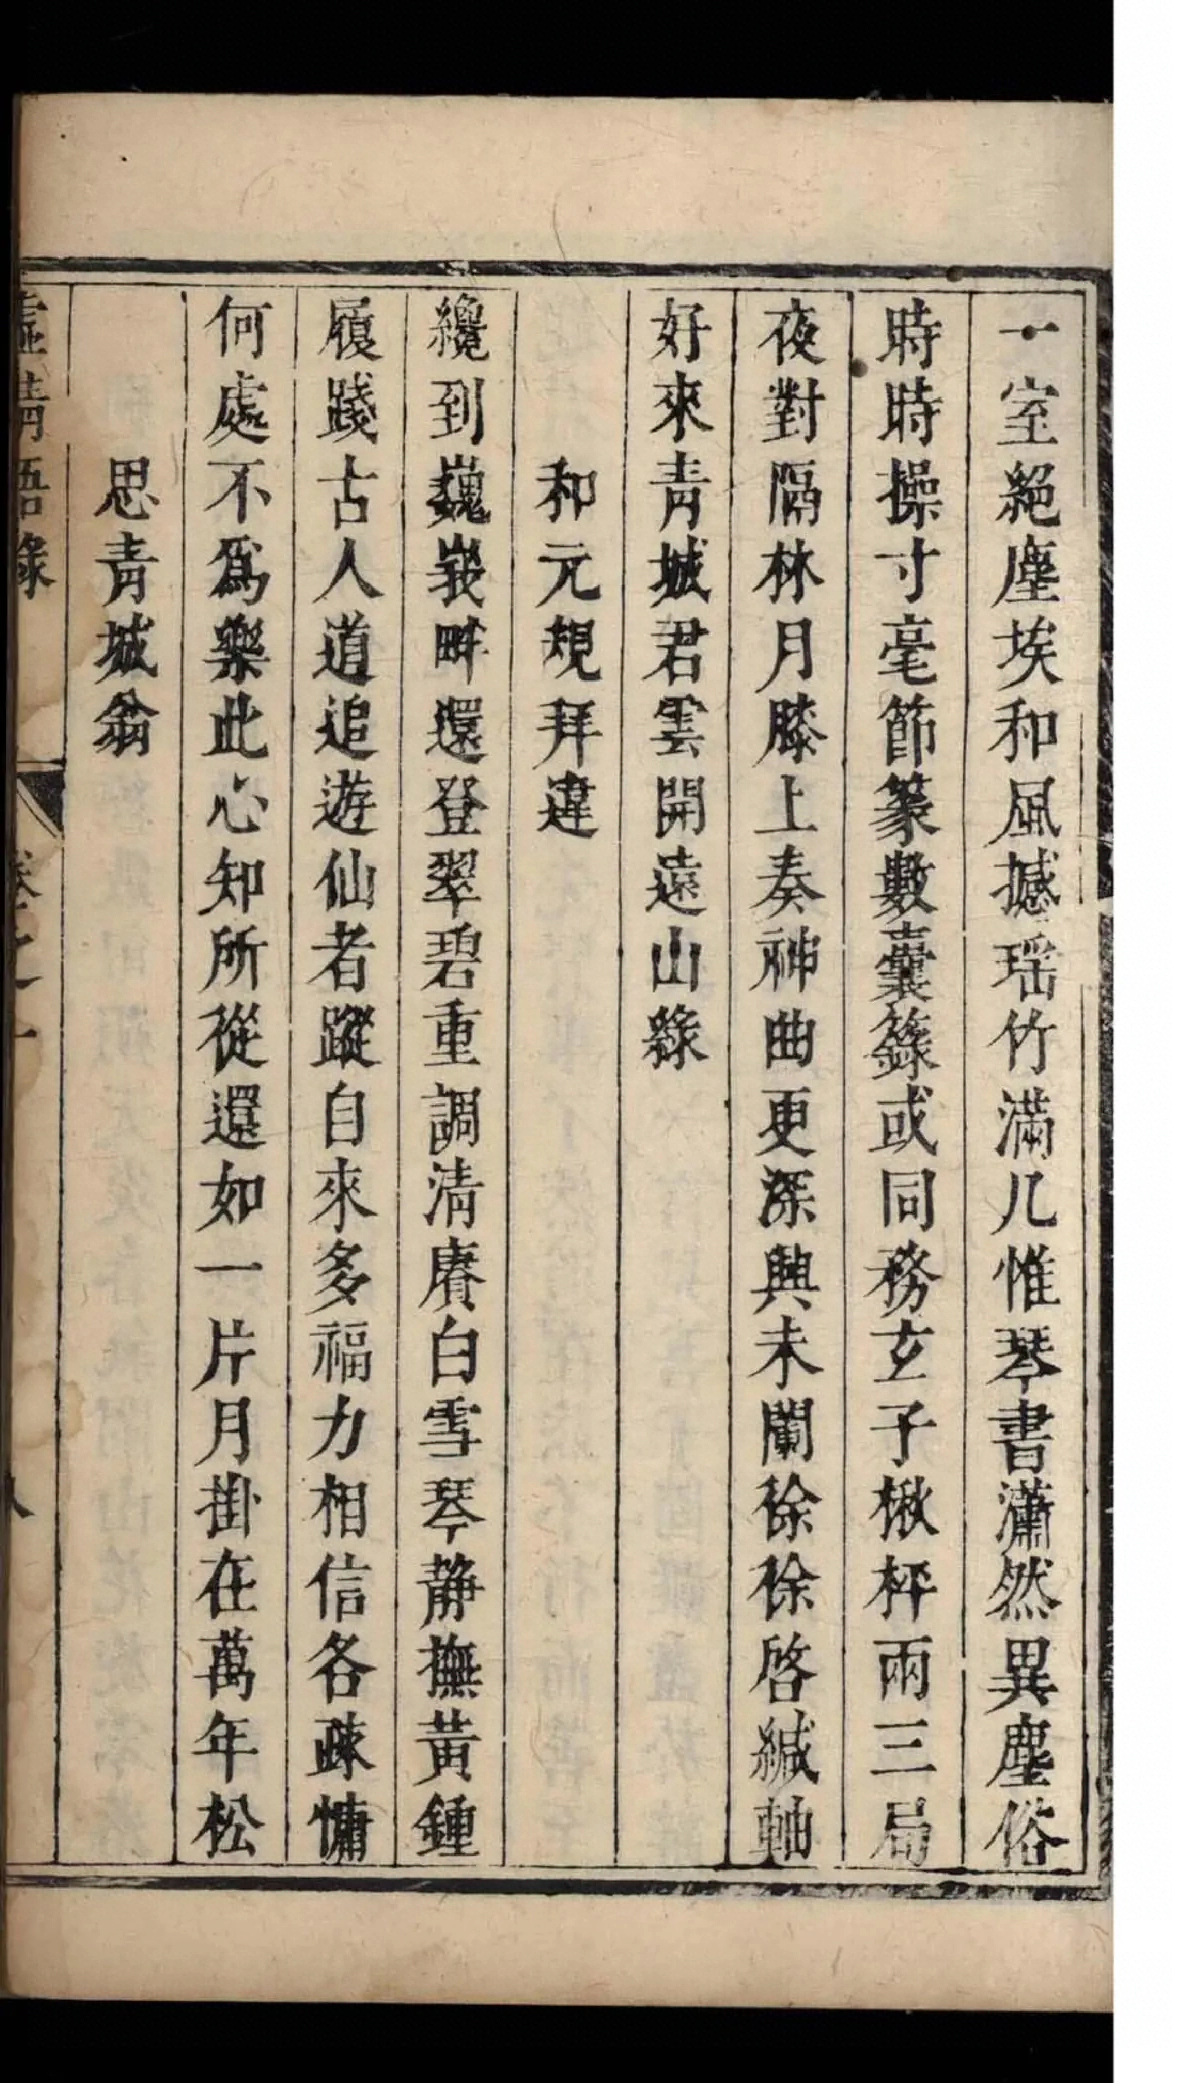 一室絕塵埃和風撼瑶竹滿几惟琴書瀟然異塵俗
時時操寸毫節篆數囊籙或同務玄子楸枰兩三局
夜對隔林月膝上奏神曲更深興未闌徐徐啓緘軸
好來青城君雲開遠山綠
和元規拜違
纔到巍峩畔還登翠碧重調清賡白雪琴静撫黃鍾
履踐古人道追遊仙者蹤自來多福力相信各疎慵
何處不爲樂此心知所從還如一片月掛在萬年松
思青城翁
虛靖語錄 卷之一 八